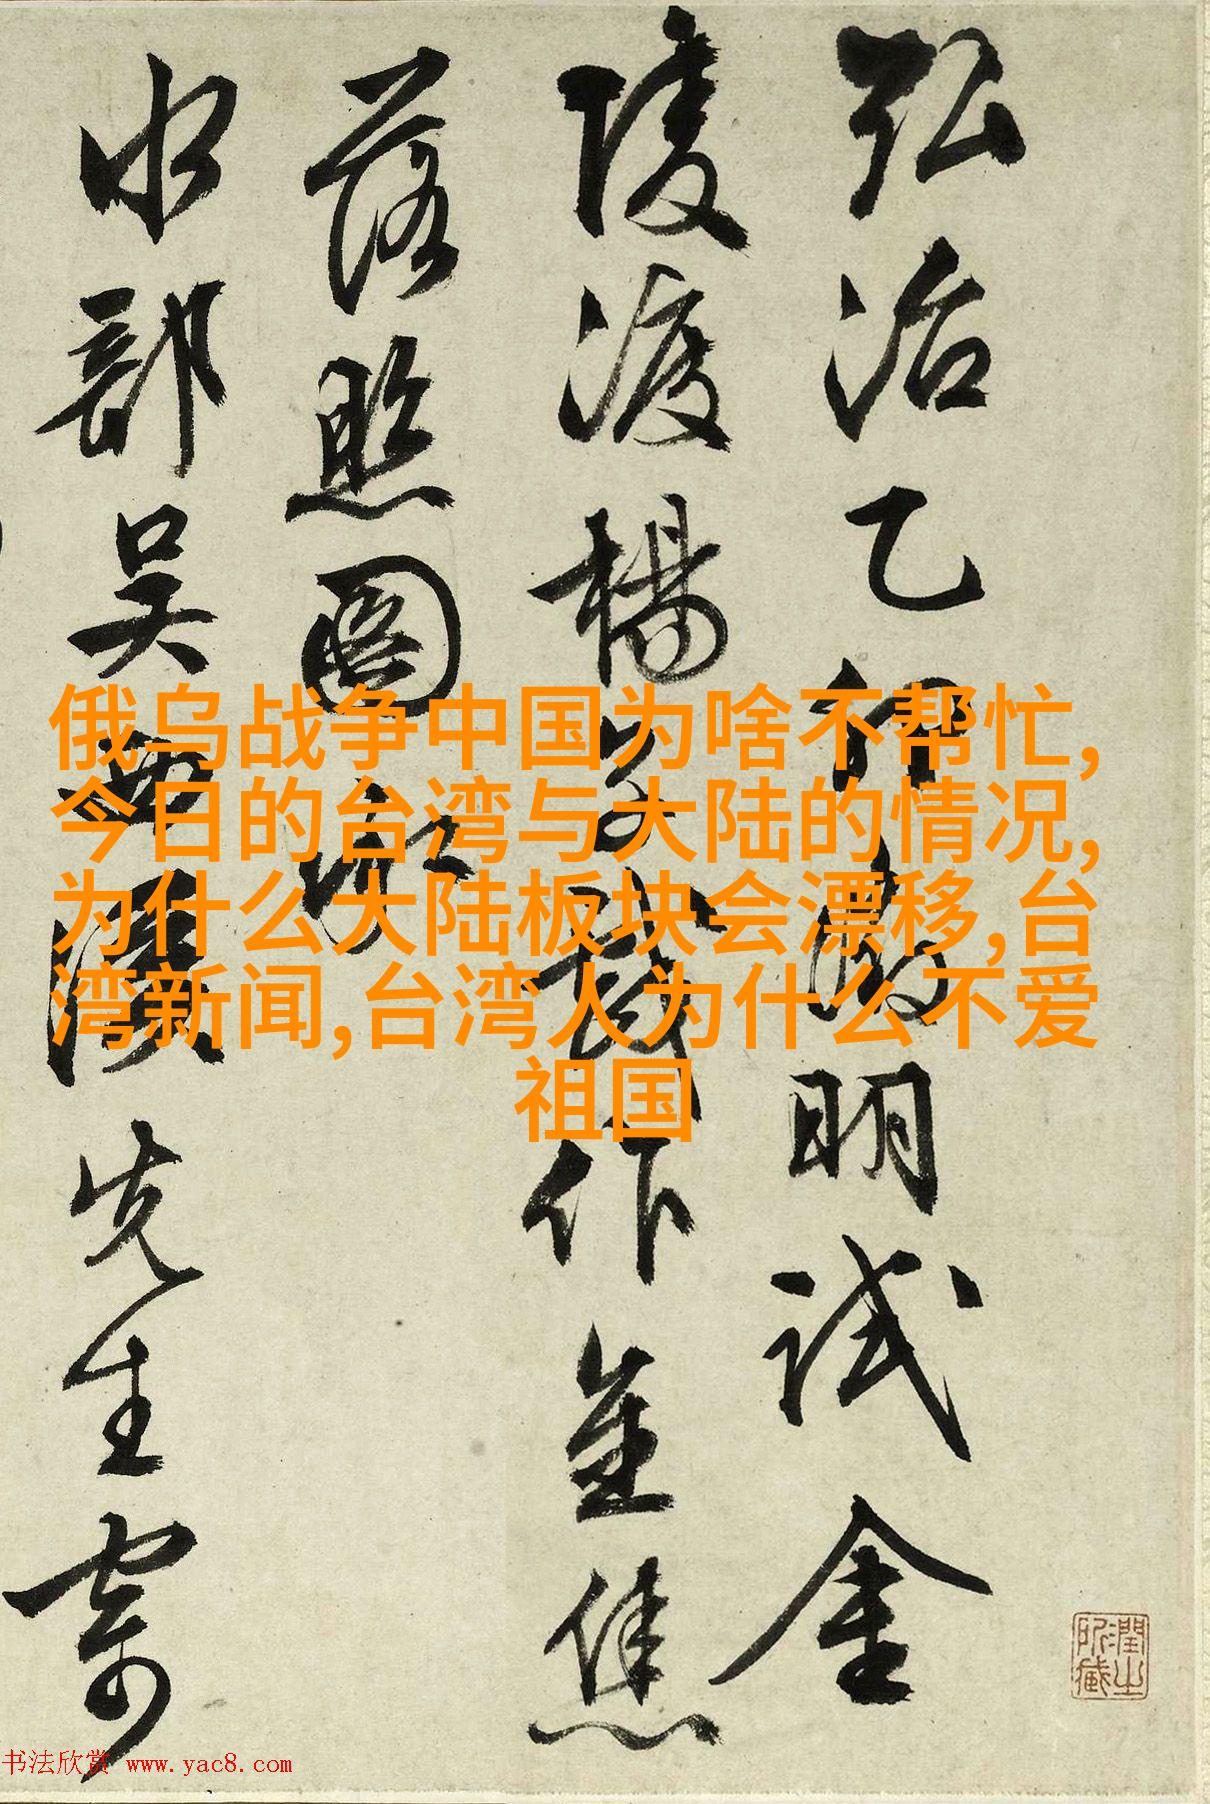 弘治乙卯徵明試金
陵渡楊子戲作金焦
落照圖
水部吴西先生寄
俄乌战争中国为啥不帮忙,
今日的台湾与大陆的情况,
为什么大陆板块会漂移,台
湾新闻,台湾人为什么不爱
祖国
潤之所藏
书法欣赏 www.yac8.com